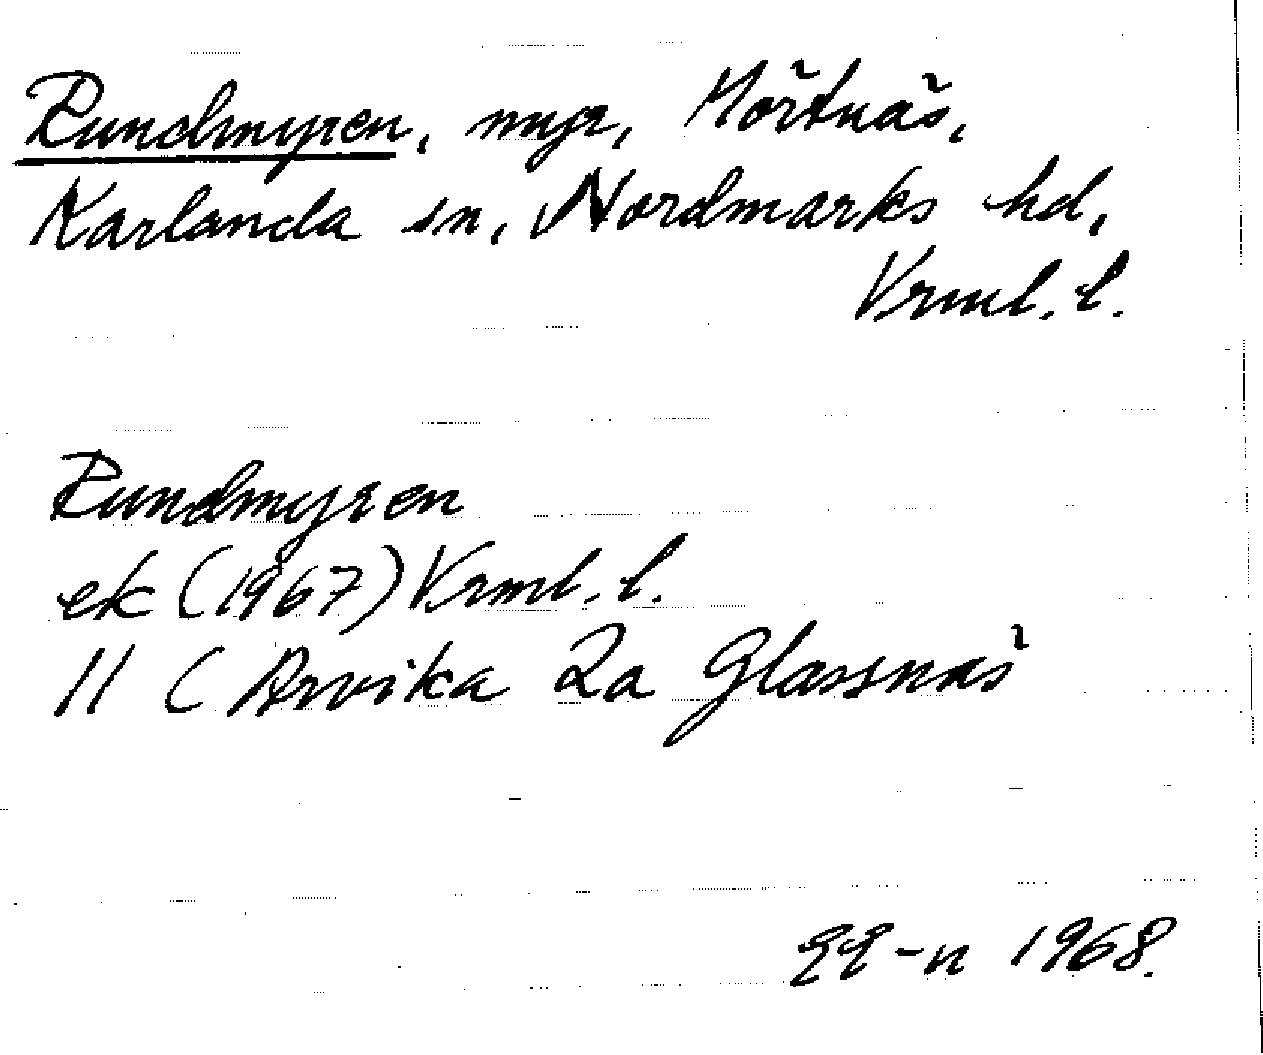 Rundmyren, myr, Mörtnäs,
Karlanda sn, Nordmarks hd,
Vrml. l.
Rundmyren
ek (1967) Vrml. l.
11 ( Arvika 2a Glassnäs
1968.